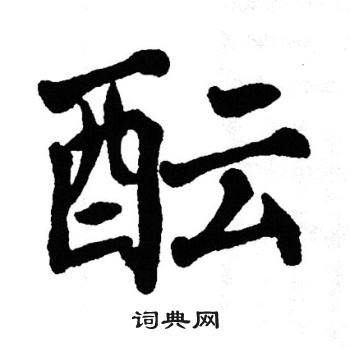 酝
词典网